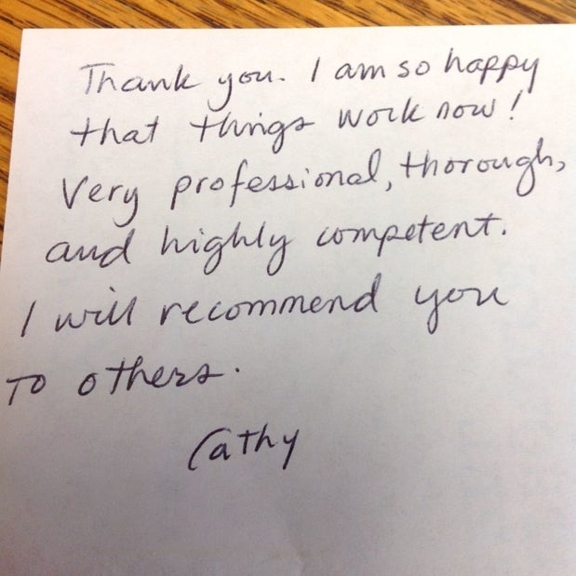 Thank you. I am so happy
that things work now!
Very professional, thorough,
and highly competent.
I will recommend you
to others.
Cathy